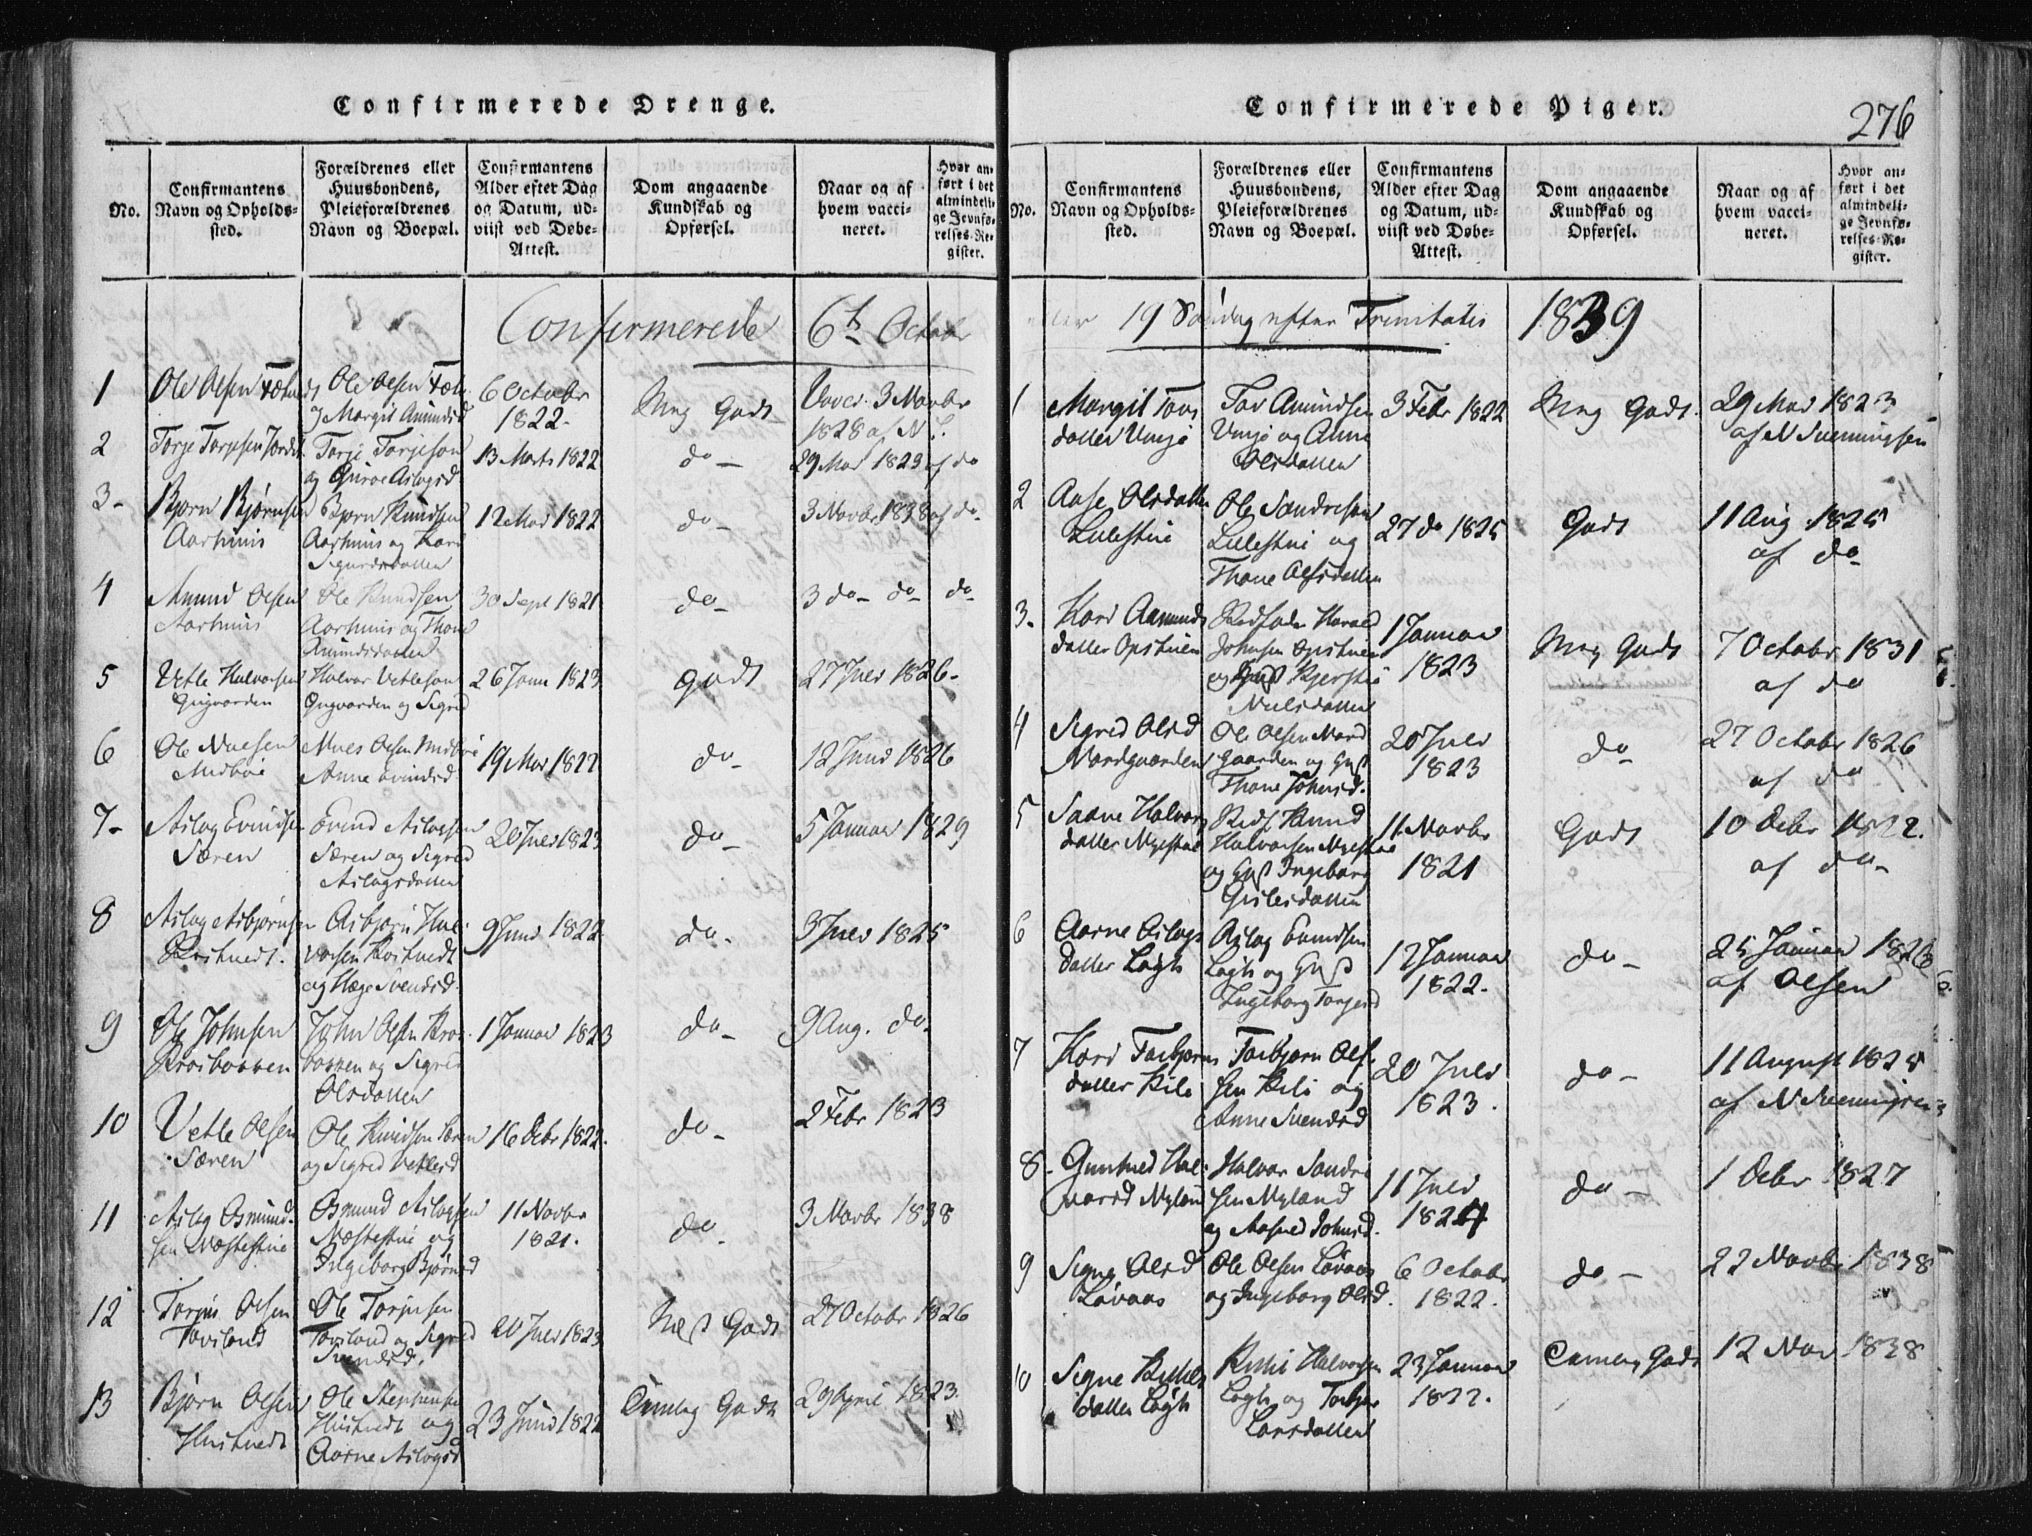 Confirmerede Drenge.
No.
Confirmantens
Navn og Opholds-
sted.
Forældrenes eller
Huusbondens,
Pleieforældrenes
Navn og Boepæl.
Confirmantens
Alder efter Dag
og Datum, ud-
viist ved Døbe-
Attest.
Dom angaaende
Kundskab og
Opførsel.
Naar og af
hvem vacci-
neret.
Hvor an-
ført i det
almindeli-
ge Jevnfø-
relses-Re-
gister.
Confirmerede 6te Octobr
1
Ole Olsen
Ole Olsen
og Margit Amundsd
6 Octobr
1822.
Meg Godt
3 Novbr
1828 af N S.
2
Torje Torjesen
Torje Torjeson
og Guroe Aslagsd
13 Marts 1822
do
29 Mai 1823 af do
3
Bjørn Bjørnsen
Aarhuus
Bjørn Knudsen
Aarhuus og Kari
Sigurdsdatter
12 Mai 1822
do
3 Novbr 1838 af do
4
Amund Olsen
Aarhuus
Ole Knudsen
Aarhuus og Thone
Amundsdatter
30 Sept 1821
do
3 do do do
5
Vetle Halvorsen
Halvor Vetleson
og Sigrid
26 Janu 1823
godt
27 Juli 1826
6
Ole Nielsen
Midbøe
Niels Olsen Midbøe
Anne Evindsd
19 Mai 1822
do
12 Juni 1826
7
Aslag Evindsen
Særen
Evind Aslagsen
Særen og Sigrid
Aslagsdatter
20 Juli 1823
do
5 Januar 1829
8
Aslag Asbjørnsen
Qvistvedt.
Asbjørn Hal-
vorsen Kvistvedt
og Hæge Svendsd
9 Juni 1822
do.
3 Juli 1825
9
Ole Johnsen
Krosbakken
John Olsen Kros-
bakken og Sigrid
Olsdatter
1 Januar 1823
do
9 Aug. do
10
Vetle Olsen
Særen
Ole Knudsen Særen
og Sigrid Vetlesd
16 Debr 1822.
do
2 Febr 1823
11
Aslag Osmund-
sen Næstestue
Osmund Aslagsen
Næstestue og
Ingeborg Bjørnsd
11 Novbr
1821.
do.
3 Novbr 1838
12
Torjus Olsen
Taviland
Ole Torjusen
Taviland og Sigrid
Svendsd.
20 Juli 1823
Næst Godt
27 Octobr 1826
13
Bjørn Olsen
Hustvedt
Ole
Hustvedt og
Aarne Aslagsd
23 Juni 1822
Temlig Godt
29 April 1823
Confirmerede Piger.
276
No.
Confirmantens
Navn og Opholds-
sted.
Forældrenes eller
Huusbondens,
Pleieforældrenes
Navn og Boepæl.
Confirmantens
Alder efter Dag
og Datum, ud-
viist ved Døbe-
Attest.
Dom angaaende
Kundskab og
Opførsel.
Naar og af
hvem vacci-
neret.
Hvor an-
ført i det
almindeli-
ge Jevnfø-
relses-Re-
gister.
eller 19 Søndag efter Trinitatis 1839
1
Margit Tovs
datter Vinje
Tov Amundsen
Vinje og Anne
Olsdatter
3 Febr 1822
Meg Godt.
29 Mai 1823
af N Svenningsen
2
Aase Olsdatter
Lillestue
Ole Sondresen
Lillestue og
Thone Olsdatter
27 do 1825
Godt
11 Aug 1825
af do
3.
Kari Aamunds
datter Opstuen
Stedfader Harald
Johnsen Opstuen
og Kjerstie
Nielsdatter
1 Januar
1823
Meg Godt
7 Octobr 1831
af do
4
Sigrid Olsd
Nordgaarden
Ole Olsen Nord
gaarden og Gust
Thone Johnsd.
20 Juli
1823
do
27 Octobr 1826
af do
5
Halvors
datter Nyestue
Knud
Halvorsen Nyestue
og Gust Ingeborg
Gislesdatter
11 Novbr
1821
Godt
10 Debr 1822.
af do
6
Aarne Aslags
datter Løgh
Aslag Evindsen
Løgh og Gust
Ingeborg Torjesd
12 Januar
1822.
do
25 Januar 1826
af Olsen
7
Kari Torbjørns
datter Kile
Torbjørn Ol-
sen Kile og
Anne Svendsd
20 Juli
1823.
do
11 August 1825
af N Svenningsen
8
Gunhild Hal-
vorsd Nyland
Halvor Sondre
sen Nyland
og Aasne Johnsd.
11 Juli
1824
do
1 Debr 1827
9
Signe Olsd
Løvaas
Ole Olsen Løvaas
og Ingeborg Olsd.
6 Octobr
1822.
do
22 Novbr 1838
10
Signe
datter Løgh
Halvorsen
Løgh og Torbjør
Larsdatter
23 Januar
1822.
Temlig Godt
12 Nov 1838